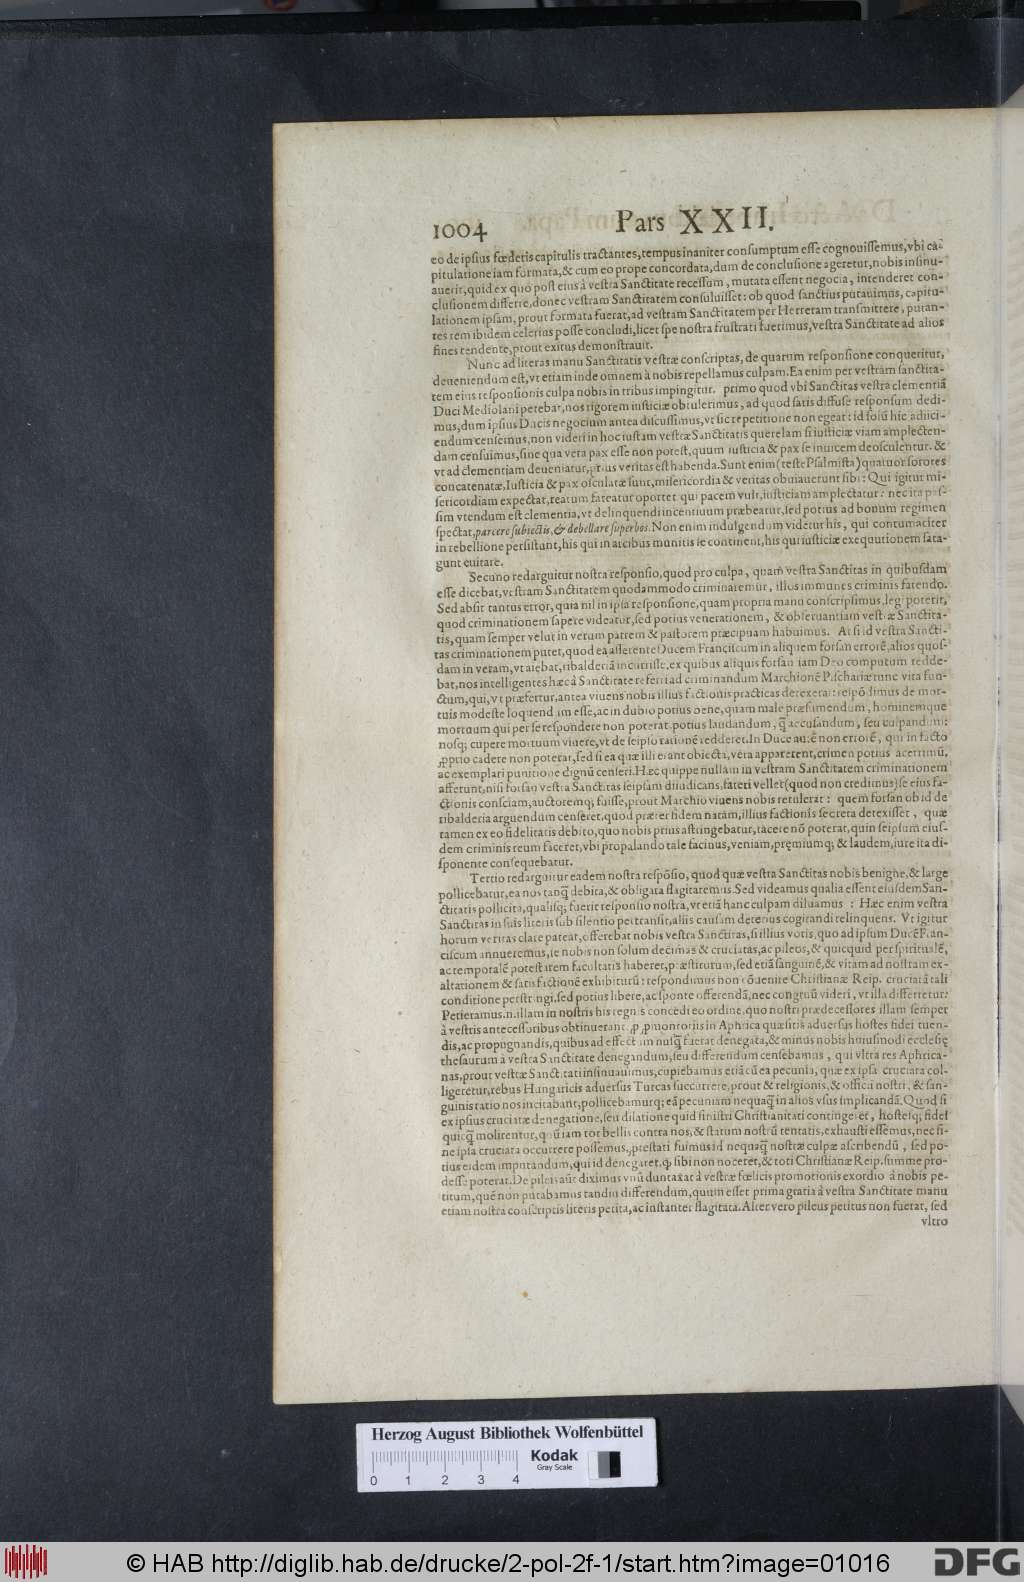 1004 Pars XXII.
eo de ipſius fœderis capitulis tractantes, tempus inaniter conſumptum eſſe cognouiſſemus, vbi ca-
pitulatione iam formata, & cum eo prope concordata, dum de concluſione ageretur, nobis inſinu-
auerit, quid ex quo poſt eius à veſtra Sanctitate receſſum, mutata eſſent negocia, intenderet con-
cluſionem differre, donec veſtram Sanctitatem conſuluiſſet: ob quod ſanctius putauimus, capitu-
lationem ipſam, prout formata fuerat, ad veſtram Sanctitatem per Herreram tranſmittere, putan-
tes rem ibidem celerius poſſe concludi, licet ſpe noſtra fruſtrati fuerimus, veſtra Sanctitate ad alios
fines tendente, prout exitus demonſtrauit.
Nunc ad literas manu Sanctitatis veſtræ conſcriptas, de quarum reſponſione conqueritur,
deueniendum eſt, vt etiam inde omnem à nobis repellamus culpam. Ea enim per veſtram ſanctita-
tem eius reſponſionis culpa nobis in tribus impingitur. primo quod vbi Sanctitas veſtra clementiã
Duci Mediolani petebat, nos rigorem iuſticiæ obtulerimus, ad quod ſatis diffuſe reſponſum dedi-
mus, dum ipſius Ducis negocium antea diſcuſſimus, vt ſic repetitione non egeat: id ſolũ hic adiici-
endum cenſemus, non videri in hoc iuſtam veſtræ Sanctitatis querelam ſi iuſticiæ viam amplecten-
dam cenſuimus, ſine qua vera pax eſſe non poteſt, quum iuſticia & pax ſe inuicem deoſculentur. &
vt ad clementiam deueniatur, prius veritas eſt habenda. Sunt enim (teſte Pſalmiſta) quatuor ſorores
concatenatæ, Iuſticia & pax oſculatæ ſunt, miſericordia & veritas obuiauerunt ſibi: Qui igitur mi-
ſericordiam expectat, reatum fateatur oportet qui pacem vult, iuſticiam amplectatur: nec ita paſ-
ſim vtendum eſt clementia, vt delinquendi incentiuum præbeatur, ſed potius ad bonum regimen
ſpectat, parcere ſubiectis, & debellare ſuperbos. Non enim indulgendum videtur his, qui contumaciter
in rebellione perſiſtunt, his qui in arcibus munitis ſe continent, his qui iuſticiæ exequutionem ſata-
gunt euitare.
Secuno redarguitur noſtra reſponſio, quod pro culpa, quam veſtra Sanctitas in quibuſdam
eſſe dicebat, veſtram Sanctitatem quodammodo criminaremur, illos immunes criminis fatendo.
Sed abſit tantus error, quia nil in ipſa reſponſione, quam propria manu conſcripſimus, legi poterit,
quod criminationem ſapere videatur, ſed potius venerationem, & obſeruantiam veſtræ Sanctita-
tis, quam ſemper velut in verum patrem & paſtorem præcipuam habuimus. At ſi id veſtra Sancti-
tas criminationem putet, quod ea aſſerente Ducem Franciſcum in aliquem forſan errorẽ, alios quoſ-
dam in veram, vt aiebat, ribalderiã incurriſſe, ex quibus aliquis forſan iam Deo computum redde-
bat, nos intelligentes hæc à Sanctitate referri ad criminandum Marchionẽ Piſchariæ tunc vita fun-
ctum, qui, vt præfertur, antea viuens nobis illius factionis practicas detexerat: reſpõdimus de mor-
tuis modeſte loquendum eſſe, ac in dubio potius bene, quam male præſumendum, hominemque
mortuum qui per ſe reſpondere non poterat potius laudandum, q̃ accuſandum, ſeu culpandum:
noſq; cupere mortuum viuere, vt de ſeipſo rationẽ redderet. In Duce autẽ non errorẽ, qui in facto
ꝓprio cadere non poterat, ſed ſi ea quæ illi erant obiecta, vera apparerent, crimen potius acerrimũ,
ac exemplari punitione dignũ cenſeri. Hæc quippe nullam in veſtram Sanctitatem criminationem
afferunt, niſi forſan veſtra Sanctitas ſeipſam diiudicans, fateri vellet (quod non credimus) ſe eius fa-
ctionis conſciam, auctoremq; fuiſſe, prout Marchio viuens nobis retulerat: quem forſan ob id de
ribalderia arguendum cenſeret, quod præter fidem natam, illius factionis ſecreta detexiſſet, quæ
tamen ex eo fidelitatis debito, quo nobis prius aſtringebatur, tacere nõ poterat, quin ſeipſum eiuſ-
dem criminis reum faceret, vbi propalando tale facinus, veniam, pręmiumq; & laudem, iure ita di-
ſponente conſequebatur.
Tertio redarguitur eadem noſtra reſpõſio, quod quæ veſtra Sanctitas nobis benighe, & large
pollicebatur, ea nos tanq̃ debita, & obligata flagitaremus. Sed videamus qualia eſſent eiuſdem San-
ctitatis pollicita, qualiſq; fuerit reſponſio noſtra, vt etiã hanc culpam diluamus: Hæc enim veſtra
Sanctitas in ſuis literis ſub ſilentio pertranſit, aliis cauſam deterius cogitandi relinquens. Vt igitur
horum veritas clare pateat, offerebat nobis veſtra Sanctitas, ſi illius votis, quo ad ipſum Ducẽ Fran-
ciſcum annueremus, ſe nobis non ſolum decimas & cruciatas, ac pileos, & quicquid per ſpiritualẽ,
ac temporalẽ poteſtatem facultatis haberet, præſtiturum, ſed etiã ſanguinẽ, & vitam ad noſtram ex-
altationem & ſatisfactionẽ exhibiturũ: reſpondimus non cõuenire Chriſtianæ Reip. cruciatã tali
conditione perſtringi, ſed potius libere, ac ſponte offerendã, nec congruũ videri, vt illa differretur:
Petieramus. n. illam in noſtris his regnis concedi eo ordine, quo noſtri prædeceſſores illam ſemper
à veſtris anteceſſoribus obtinuerant, ꝓ ꝓmontoriis in Aphrica quæſitis aduerſus hoſtes fidei tuen-
dis, ac propugnandis, quibus ad effectum nuſq̃ fuerat denegata, & minus nobis huiuſmodi eccleſię
theſaurum à veſtra Sanctitate denegandum, ſeu differendum cenſebamus, qui vltra res Aphrica-
nas, prout veſtræ Sanctitati inſinuauimus, cupiebamus etiã cũ ea pecunia, quæ ex ipſa cruciata col-
ligeretur, rebus Hungaricis aduerſus Turcas ſuccurrere, prout & religionis, & officii noſtri, & ſan-
guinis ratio nos incitabant, pollicebamurq; eã pecuniam nequaq̃ in alios vſus implicandã. Quod ſi
ex ipſius cruciatæ denegatione, ſeu dilatione quid ſiniſtri Chriſtianitati contingeret, hoſteſq; fidei
quicq̃ molirentur, quũ iam tot bellis contra nos, & ſtatum noſtrũ tentatis, exhauſti eſſemus, nec ſi-
ne ipſa cruciata occurrere poſſemus, ꝓteſtati fuimus id nequaq̃ noſtræ culpæ aſcribendũ, ſed po-
tius eidem imputandum, qui id denegaret, q̃ ſibi non noceret, & toti Chriſtianæ Reip. ſumme pro-
deſſe poterat. De pileis aũt diximus vnũ duntaxat à veſtræ fœlicis promotionis exordio à nobis pe-
titum, quẽ non putabamus tandiu differendum, quum eſſet prima gratia à veſtra Sanctitate manu
etiam noſtra conſcriptis literis petita, ac inſtanter flagitata. Alter vero pileus petitus non fuerat, ſed
vltro
Herzog August Bibliothek Wolfenbüttel
Kodak
Gray Scale
0 1 2 3 4
© HAB http://diglib.hab.de/drucke/2-pol-2f-1/start.htm?image=01016
DFG